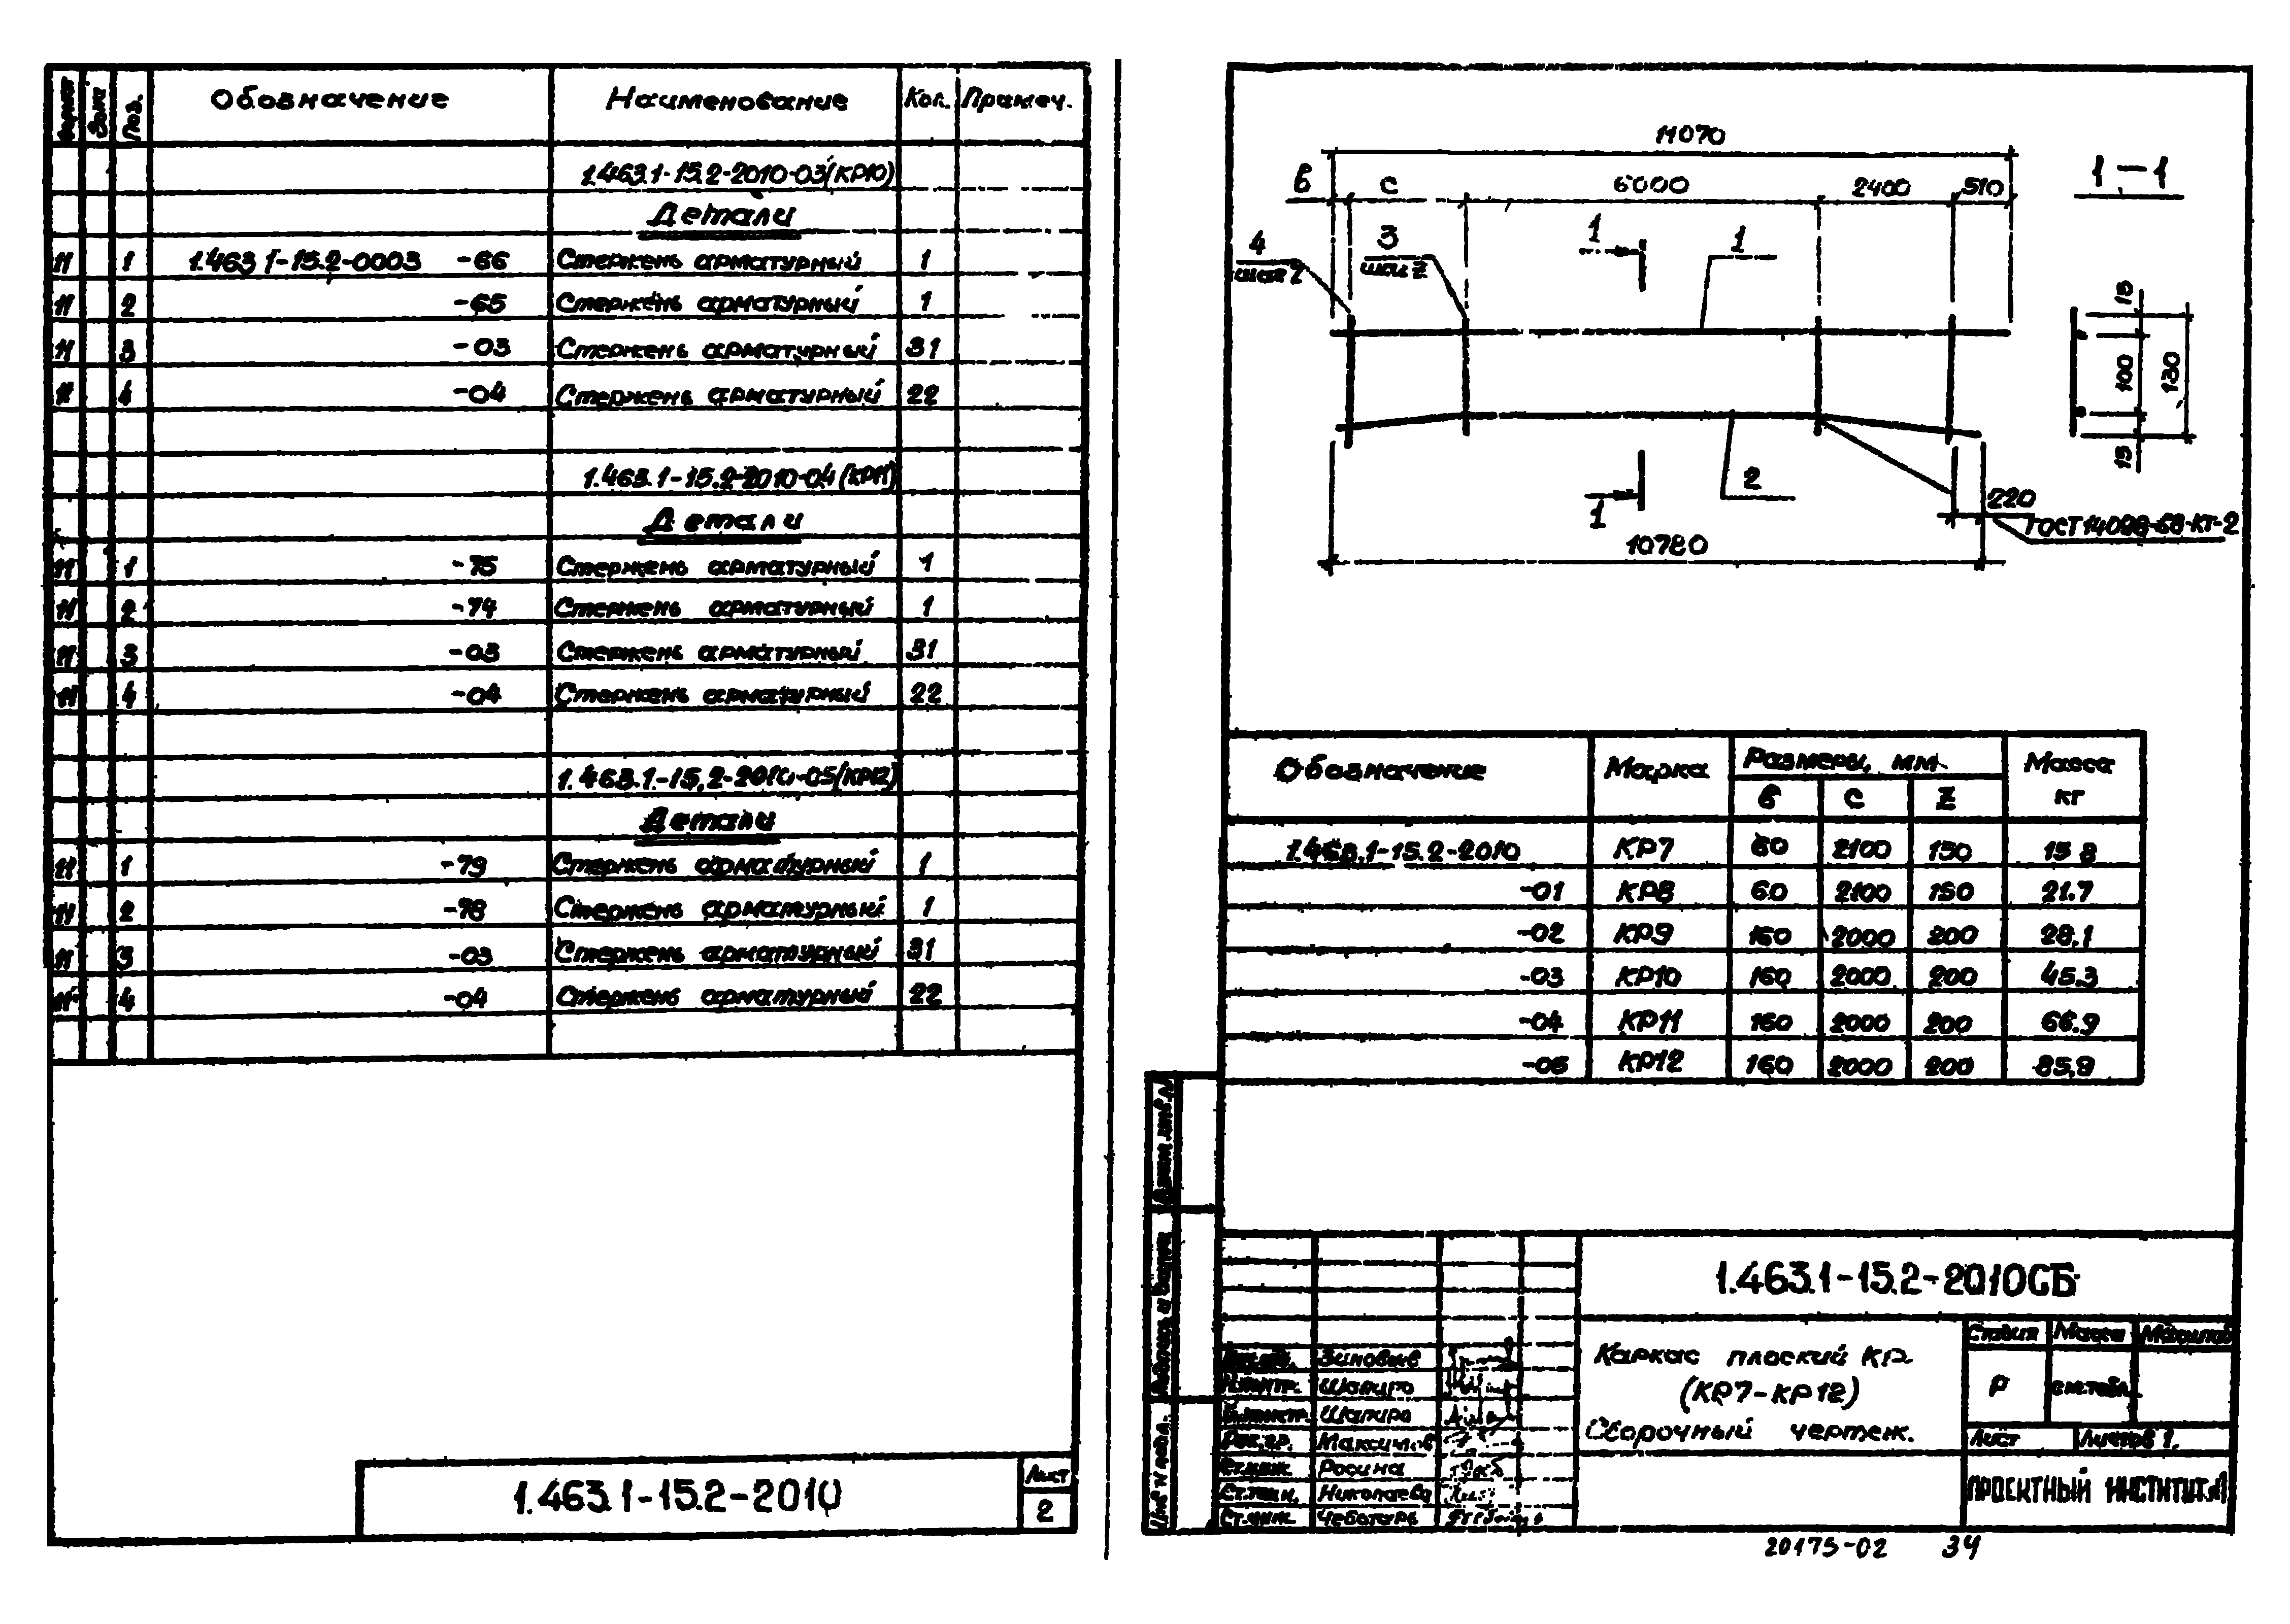 Формат Зона Поз. Обозначение Наименование Кол. Примеч.
1.463.1-15.2-2010-03(КР10)
Детали
11 1 1.463 1-15.2-0003 -66 Стержень арматурный 1
11 2 -65 Стержень арматурный 1
11 3 -03 Стержень арматурный 31
11 4 -04 Стержень арматурный 22
1.463.1-15.2-2010-04(КР11)
Детали
11 1 -75 Стержень арматурный 1
11 2 -74 Стержень арматурный 1
11 3 -03 Стержень арматурный 31
11 4 -04 Стержень арматурный 22
1.463.1-15.2-2010-05(КР12)
Детали
11 1 -79 Стержень арматурный 1
11 2 -78 Стержень арматурный 1
11 3 -03 Стержень арматурный 31
11 4 -04 Стержень арматурный 22
1.463.1-15.2-2010
Лист
2
11070
в с 6000 2400 510
1-1
4
шаг Z
3
шаг Z
1
1
15
100
130
15
1
2
220
ГОСТ 14098-68-КТ-2
10780
Обозначение Марка Размеры, мм Масса кг
в с Z
1.463.1-15.2-2010 КР7 60 2100 150 15.8
-01 КР8 60 2100 150 21.7
-02 КР9 160 2000 200 28.1
-03 КР10 160 2000 200 45.3
-04 КР11 160 2000 200 66.9
-05 КР12 160 2000 200 85.9
Взам. инв. №
Подпись и дата
Инв № подл.
1.463.1-15.2-2010СБ
Каркас плоский КР
(КР7-КР12)
Сборочный чертеж.
Стадия Масса Масштаб
Р см.табл.
Лист Листов 1.
ПРОЕКТНЫЙ ИНСТИТУТ №1
Зиновьев
Н.контр. Шапиро
Гл.констр. Шапиро
Рук.гр. Максимов
Ст.инж. Росина
Ст.техн. Николаева
Ст.инж. Чеботарь
20175-02 34